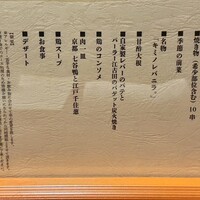 ■焼き物(希少部位含む)10串
■季節の前菜
■名物
「キミノレバニラ。」
■甘酢大根
■自家製レバーのパテと
パーラー江古田のバゲット炭火焼き
■鶏のコンソメ
■肉一皿
京都 七谷鴨と江戸千住葱
■鶏スープ
■お食事
■デザート